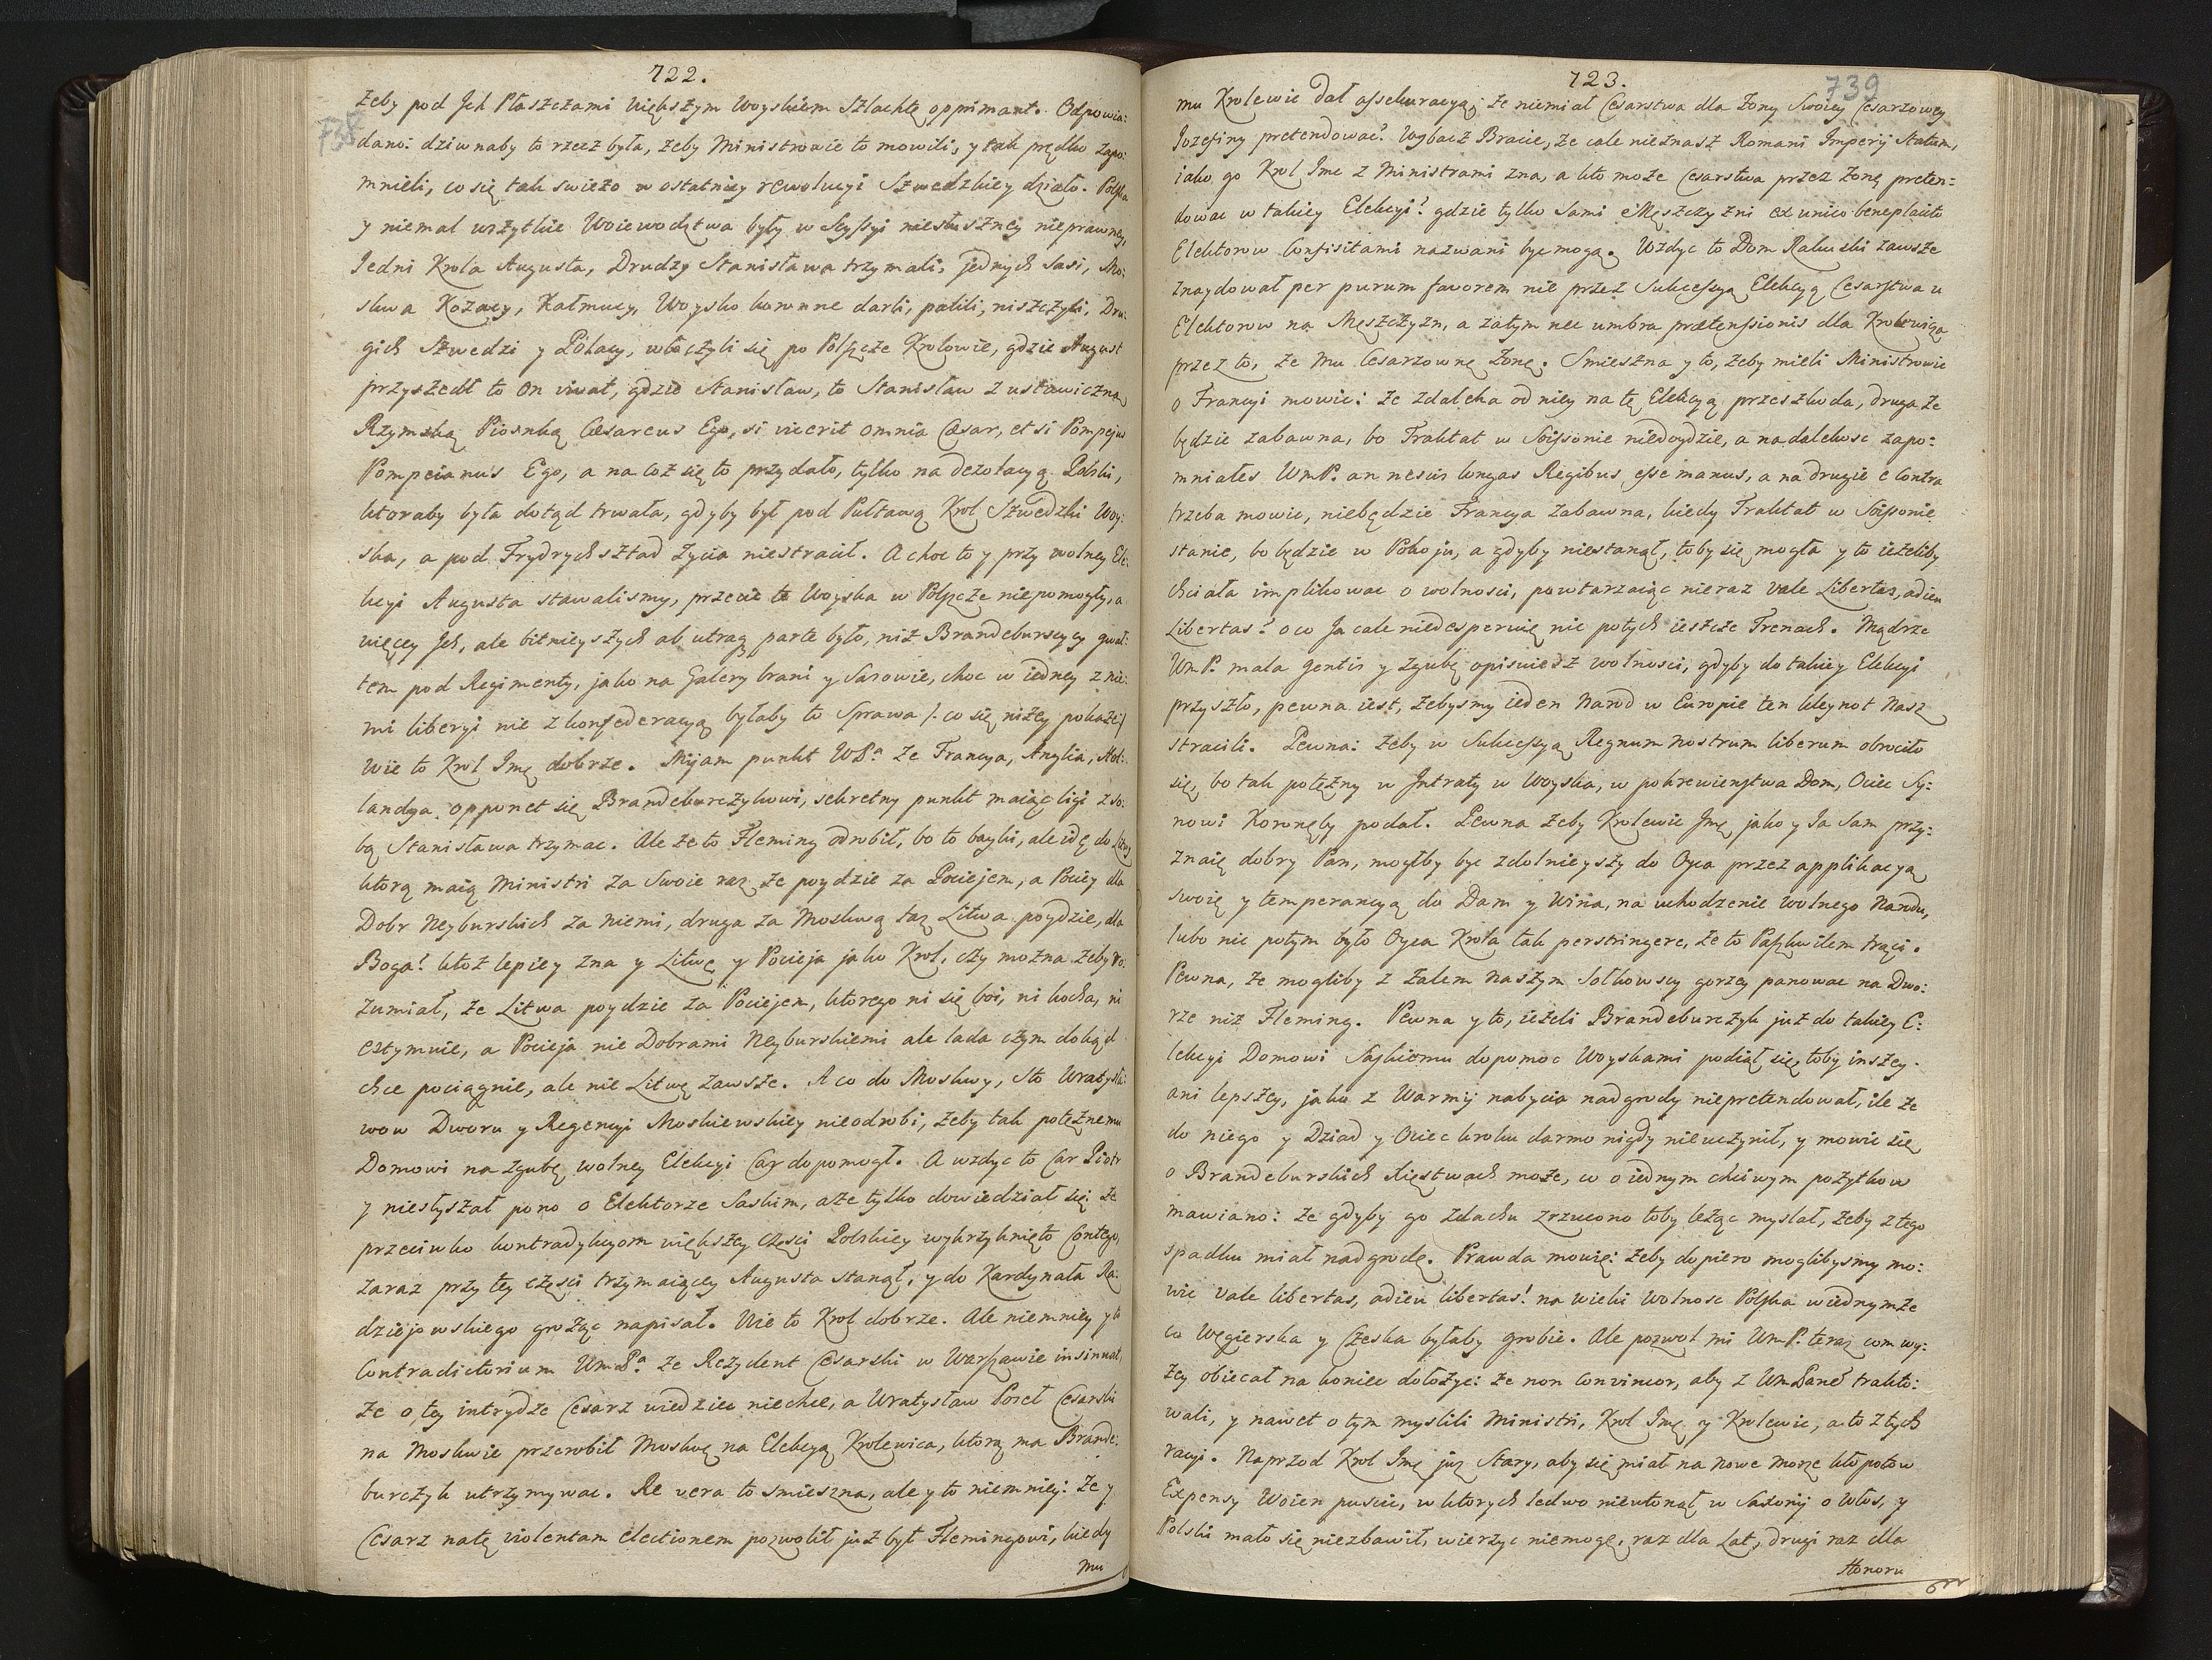 722.
738
żeby pod Jch Płaszczami większym Woyskiem Szlachtę opprimant. Odpowia:
dano: dziwnaby to rzecz była, żeby Ministrowie to mowili, y tak prędko zapo:
mnieli, co się tak swieżo w ostatniey rewolucyi Szwedzkiey działo. Polska
y niemal wszytkie Woiewodztwa były w Scyssyi niesłuszney nieprawney,
Jedni Krola Augusta, Drudzy Stanisława trzymali, jednych Sasi, Mo:
skwa Kozacy, Kałmucy, Woysko koronne darli, palili, niszczyli, Dru:
gich Szwedzi y Polacy, włoczyli się po Polszcze Krolowie, gdzie August
przyszedł to on vivat, gdzie Stanisław, to Stanisław z ustawiczną
Rzymską Piosnką Cæsareus Ego, si vicerit omnia Cæsar, et si Pompejus
Pompeianus Ego, a na coż się to przydało, tylko na dezolacyą Polski,
ktoraby była dotąd trwała, gdyby był pod Pułtawą Krol Szwedzki Woy:
ska, a pod Frydrychsztad życia niestracił. A choc to y przy wolney Ele:
kcyi Augusta stawalismy, przecie te Woyska w Polszcze niepomogły, a
więcey Jch, ale bitnieyszych ab utraq parte było, niż Brandeburscy gwał:
tem pod Regimenty, jako na Galery brani y Sasowie, choc w iedney z nie:
mi liberyi nie z konfederacyą byłaby to Sprawa /: co się niżey pokaże/
Wie to Krol Jmę dobrze. Mijam punkt WPa że Francya, Anglia, Hol:
landya opponet się Brandeburczykowi, sekretny punkt maiąc ligi z so:
bą Stanisława trzymac. Ale że to Fleming odrobił, bo to bayki, ale idę do Litwy
ktorą maią Ministri za Swoie raz że poydzie za Pociejem, a Pociey dla
Dobr Neyburskich za niemi, druga za Moskwą taż Litwa poydzie, dla
Boga! ktoż lepiey zna y Litwę y Pocieja jako Krol, czy można żeby ro:
zumiał, że Litwa poydzie za Pociejem, ktorego ni się boi, ni kocha, ni
estymuie, a Pocieja nie Dobrami Neyburskiemi ale lada czym dokąd
chce pociągnie, ale nie Litwę zawsze. A co do Moskwy, sto Wratysła:
wow Dworu y Regencyi Moskiewskiey nieodrobi, żeby tak potężnemu
Domowi na zgubę wolney Elekcyi Car dopomogł. A wzdyc to Car Piotr
y niesłyszał pono o Elektorze Saskim, aże tylko dowiedział się: że
przeciwko kontradykcyom większey częsci Polskiey wykrzyknięto Contego,
zaraz przy tey częsci trzymaiącey Augusta stanął, y do Kardynała Ra:
dziejowskiego grożąc napisał. Wie to Krol dobrze. Ale niemniey y to
Contradictorium WmPa że Rezydent Cesarski w Warszawie insinuał,
że o tey intrydze Cesarz wiedziec niechce, a Wratysław Poseł Cesarski
na Moskwie przerobił Moskwę na Elekcyą Krolewica, ktorą ma Brande:
burczyk utrzymywac. Re vera to smieszna, ale y to niemniey: że y
Cesarz natę violentam electionem pozwolił już był Flemingowi, kiedy
mu
723.
739
mu Krolewic dał assekuracyą; że niemiał Cesarstwa dla Żony Swoiey Cesarzowey
Jozefiny pretendowac? Wybacz Bracie, że cale nieznasz Romani Imperij Statum,
iako go Krol Jmc z Ministrami zna, a kto może Cesarstwa przez Żonę preten:
dowac w takiey Elekcyi? gdzie tylko Sami Męszczyzni ex unico beneplacito
Elektorow Consisitami nazwani byc mogą. Wzdyc to Dom Rakuski zawsze
znaydował per purum favorem nie przez Sukcessyą Elekcyą Cesarstwa u
Elektorow na Męszczyzn, a zatym nec umbra prætensionis dla Krolewica
przez to, że mu Cesarzownę żonę. Smieszna y to, żeby mieli Ministrowie
o Francyi mowic: że zdaleka od niey na tę Elekcyą przeszkoda, druga że
będzie zabawna, bo Traktat w Soissonie niedoydzie, a na dalekosc zapo:
mniałes WmP. an nescis longas Regibus esse manus, a na drugie e contra
trzeba mowic, niebędzie Francya zabawna, kiedy Traktat w Soissonie
stanie, bo będzie w Pokoju, a gdyby niestanął, toby się mogła y to ieżeliby
chciała implikowac o wolnosci, powtarzaiąc nieraz vale Libertas, adieu
Libertas? oco Ja cale niedesperuię nic potych ieszcze Trenach. Mądrze
WmP. mala gentis y zgubę opisuiesz wolnosci, gdyby do takiey Elekcyi
przyszło, pewna iest, żebysmy ieden Narod w Europie ten kleynot Nasz
stracili. Pewna: żeby w Sukcessyą Regnum nostrum liberum obrociło
się, bo tak potężny w Jntraty w Woyska, w pokrewienstwa Dom, Ociec Sy:
nowi Koronęby podał. Pewna żeby Krolewic Jmę, jako y Ja Sam przy:
znaię dobry Pan, mogłby byc zdolnieyszy do Oyca przez applikacyą
swoię y temperancyą do Dam y Wina, na uchodzenie wolnego Narodu,
lubo nic potym było Oyca Krola tak perstringere, że to Paszkwilem trąci.
Pewna, że mogliby z żalem naszym Sołkowscy gorzey panowac na Dwo:
rze niż Fleming. Pewna y to, ieżeli Brandeburczyk już do takiey E:
lekcyi Domowi Saskiemu dopomoc Woyskami podiął się, toby inszey
ani lepszey, jako z Warmij nabycia nadgrody niepretendował, ile że
do niego y Dziad y Ociec kroku darmo nigdy nieuczynił, y mowic się
o Brandeburskich Xięstwach może, co o iednym chciwym pożytkow
mawiano: że gdyby go zdachu zrzucono toby leżąc myslał, żeby z tego
spadku miał nadgrodę. Prawda mowię: żeby dopiero moglibysmy mo:
wic vale libertas, adieu libertas! na wieki Wolnosc Polska wiednymże
co Węgierska y Czeska byłaby grobie. Ale pozwol mi WmP. teraz com wy:
żey obiecał na koniec dołożyc: że non convincor, aby z WmPanem trakto:
wali, y nawet o tym myslili Ministri, Krol Jmę y Krolewic, a to z tych
racyi. Naprzod Krol Jmę już Stary, aby się miał na nowe morze kłopotow
Expensy Woien puscic, w ktorych ledwo nieutonął w Saxonij o włos, y
Polski mało się niezbawił, wierzyc niemogę, raz dla Lat, drugi raz dla
Honoru